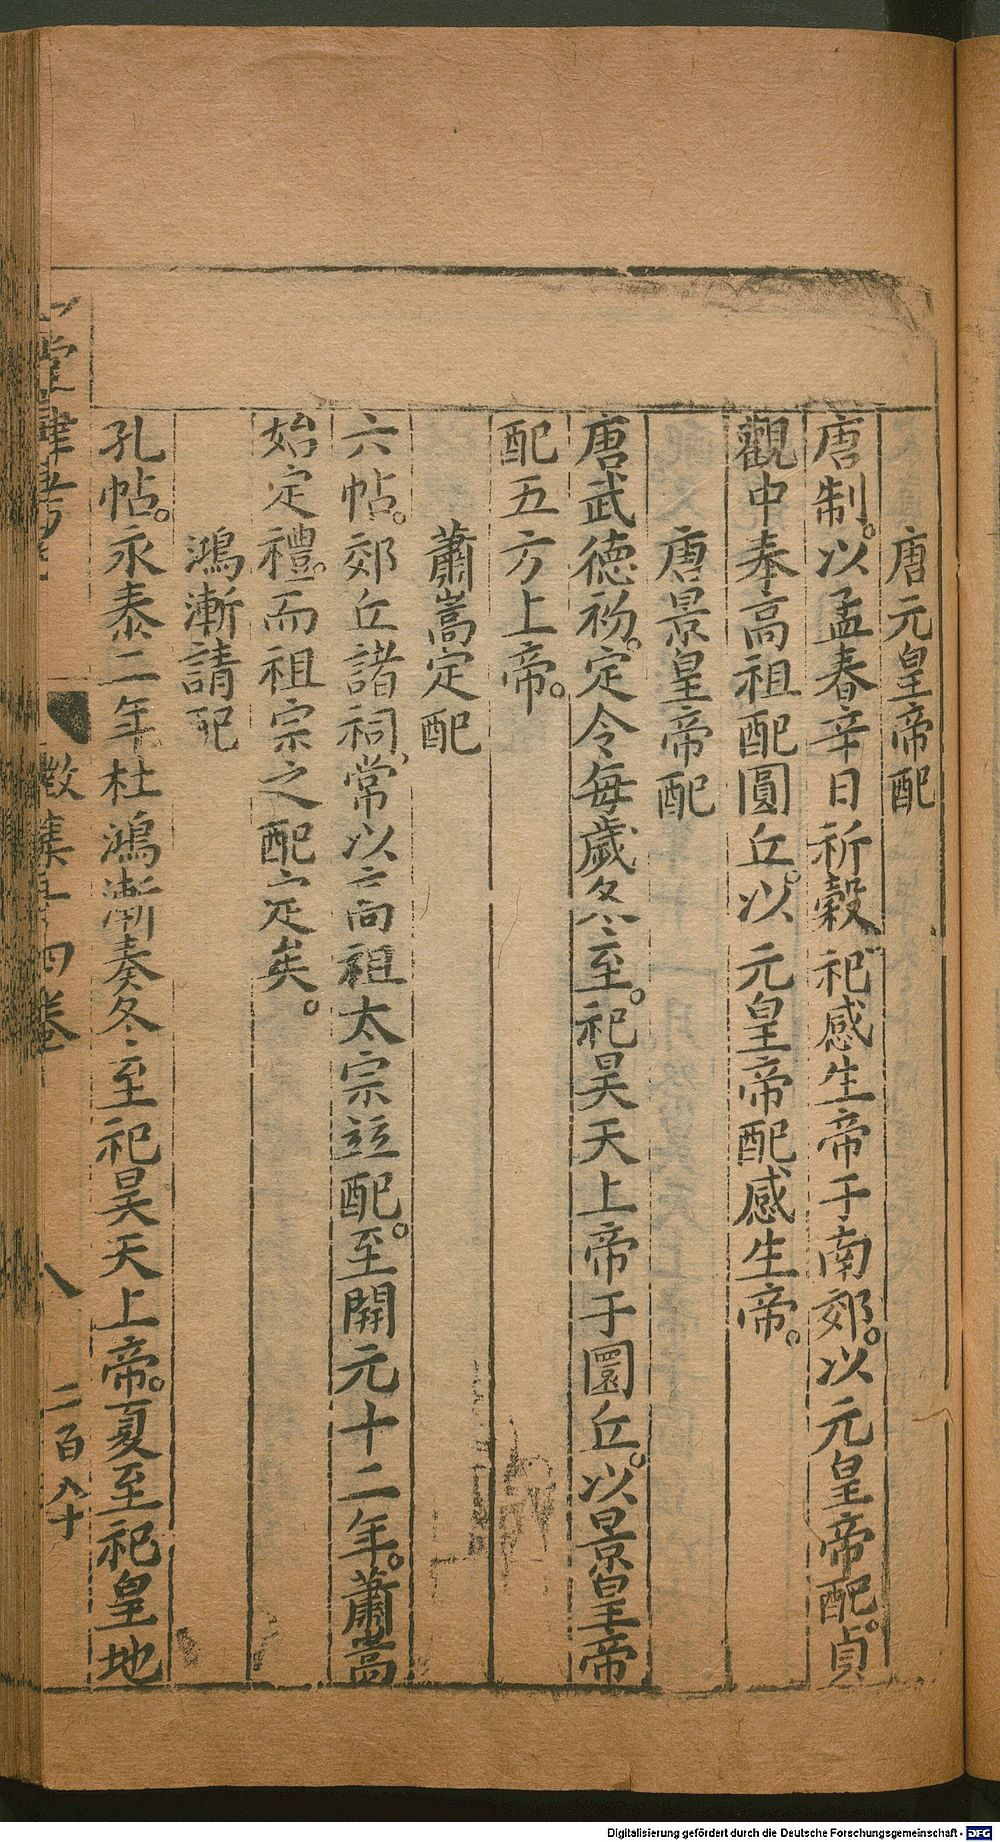 唐元皇帝配
唐制。以孟春辛日祈穀祀感生帝于南郊。以元皇帝配。貞
觀中奉高祖配圓丘。以元皇帝配感生帝。
唐景皇帝配
唐武德初。定令每歲冬至。祀昊天上帝于圜丘。以景皇帝
配五方上帝。
蕭嵩定配
六帖。郊丘諸祠、常以高祖太宗竝配。至開元十二年。蕭嵩
始定禮。而祖宗之配定矣。
鴻漸請配
孔帖。永泰二年杜鴻漸奏冬至祀昊天上帝。夏至祀皇地
堂肆考
徵集
四卷
八
二百八十
Digitalisierung gefördert durch die Deutsche Forschungsgemeinschaft - DFG